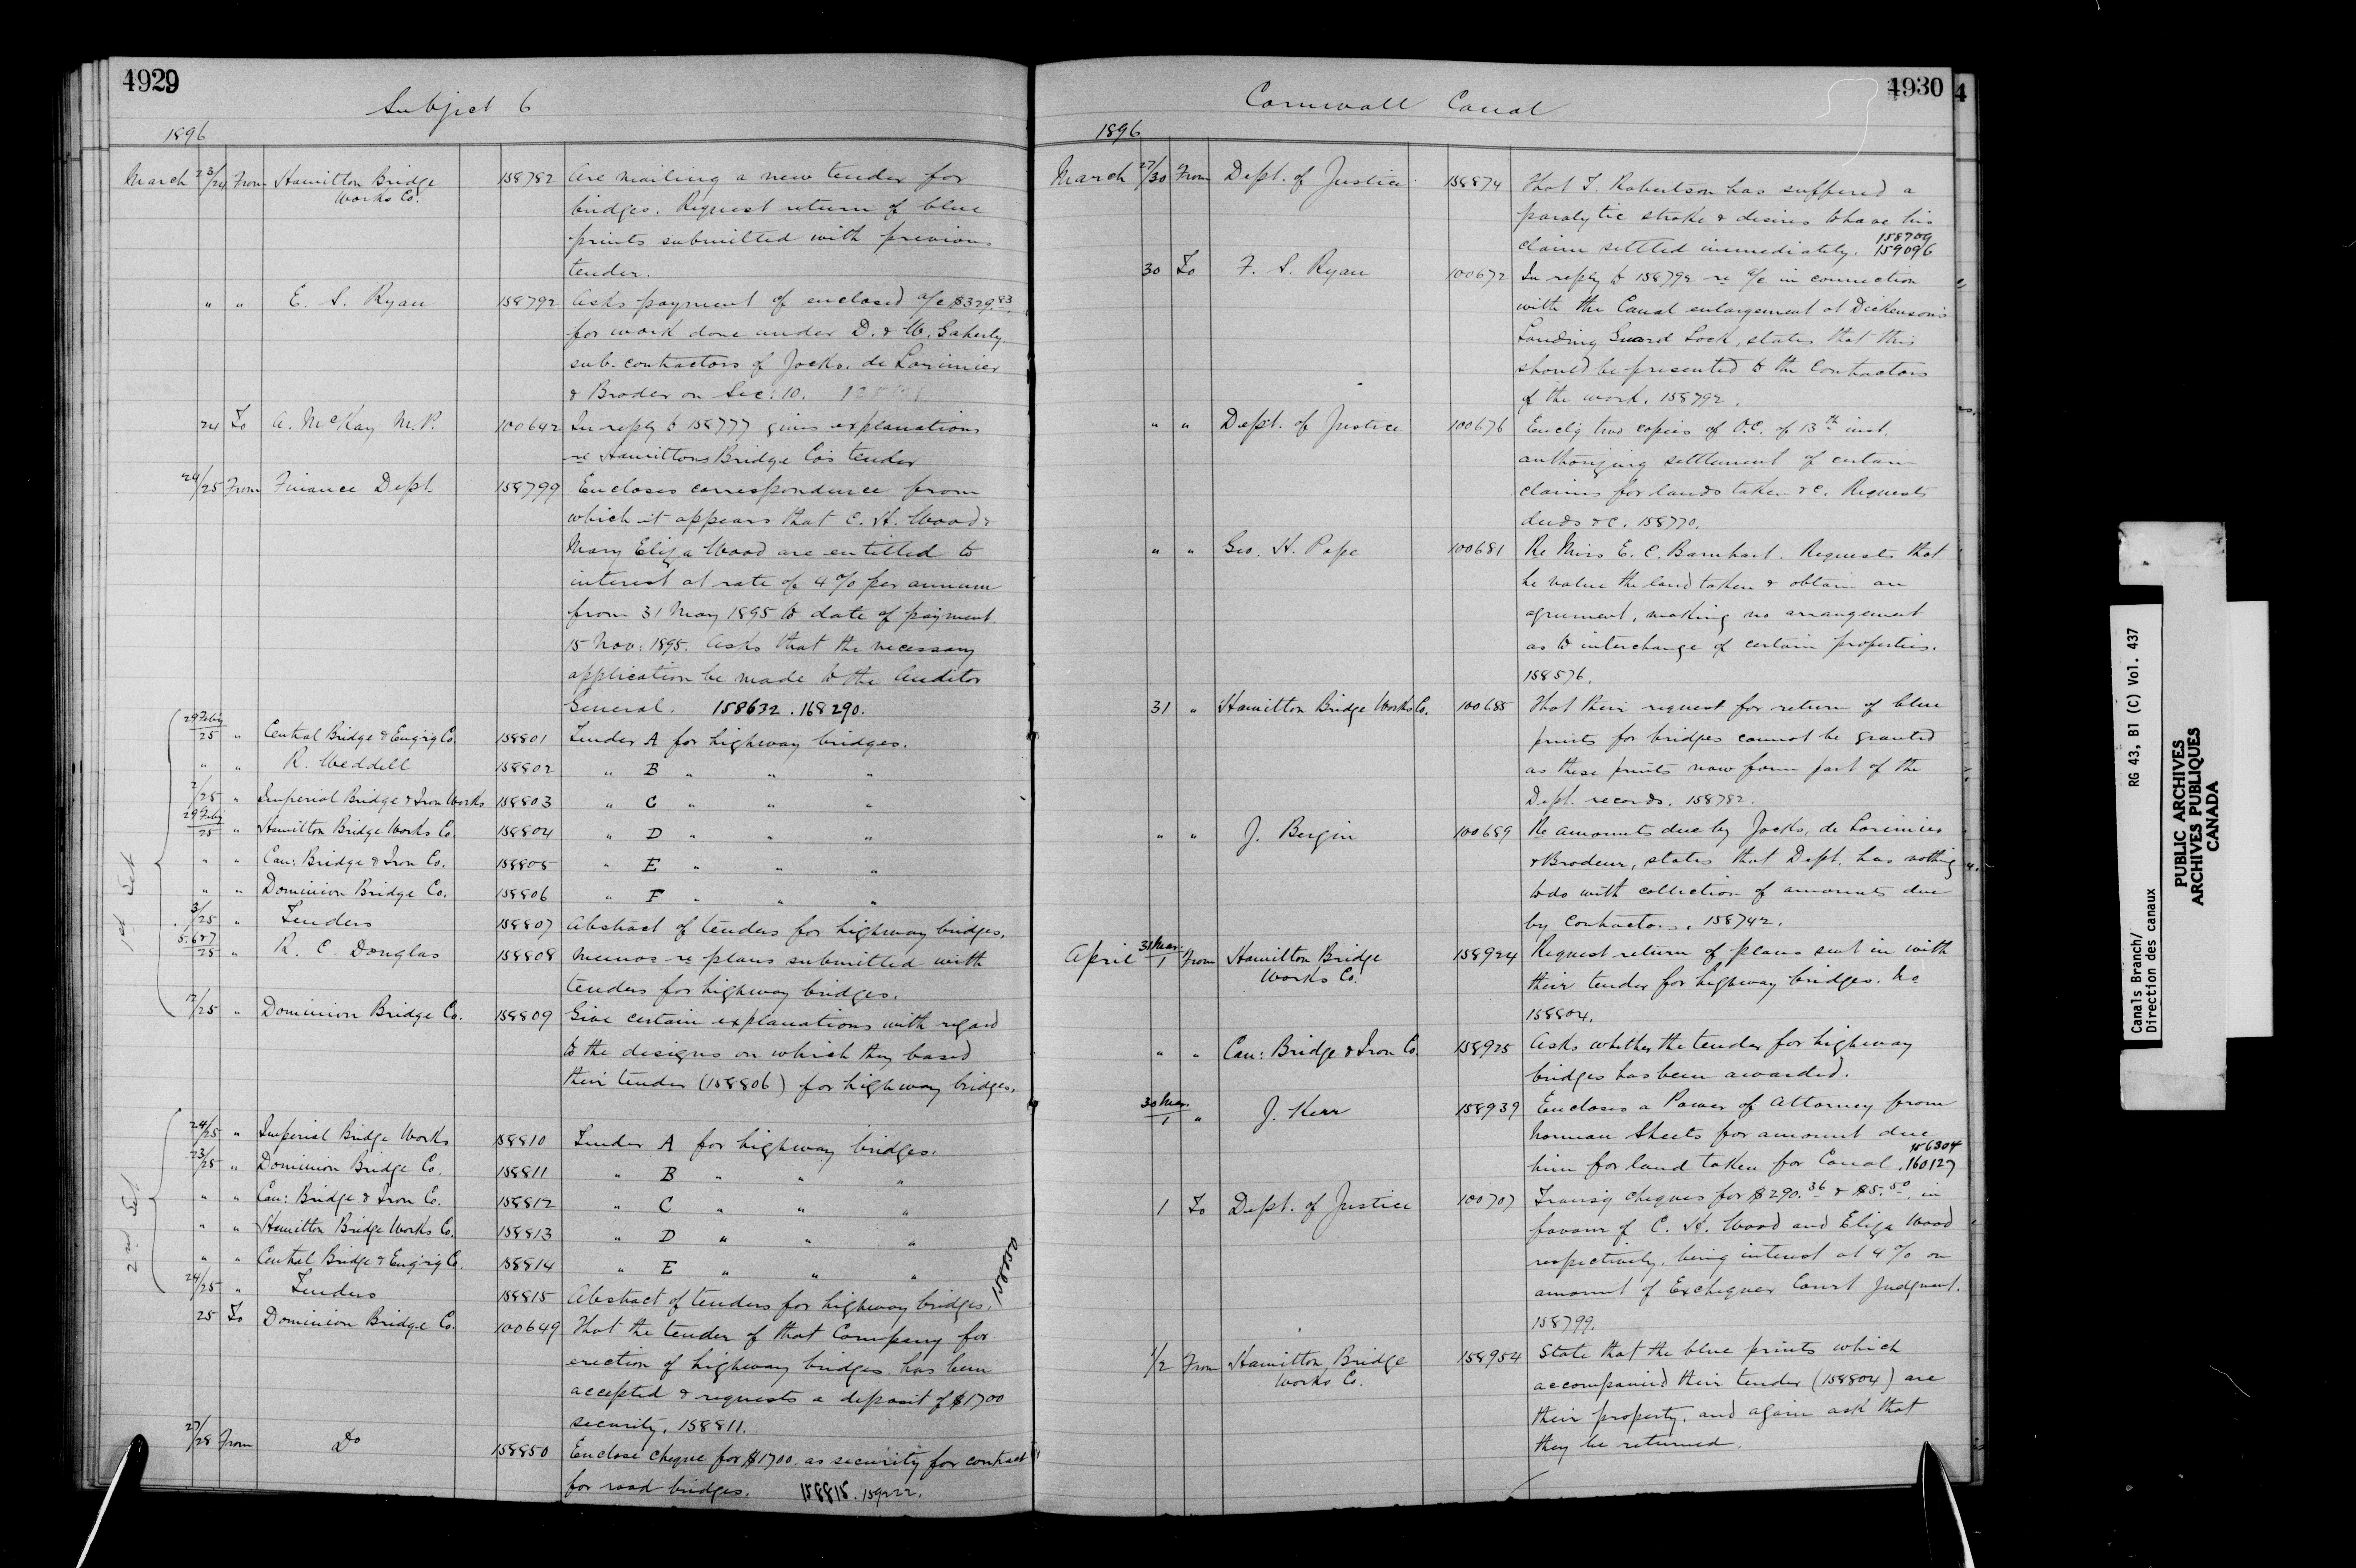 4929
Subject 6
1896
March 23/24 From Hamilton Bridge Works Co. 158782 Are mailing a new tender for
bridges. Request return of blue
prints submitted with previous
tender.
" " E. S. Ryan 158792 Asks payment of enclosed a/c $329.83
for work done under D. & W. Gaherty
sub. contractors of Jocks. de Lorimier
& Broder on Sec: 10.
24 To A. McKay M.P. 100642 In reply to 158777 gives explanations
re Hamiltons Bridge Co's tender
24/25 From Finance Dept. 158799 Encloses correspondence from
which it appears that C. H. Wood &
Mary Eliza Wood are entitled to
interest at rate of 4% per annum
from 31 May 1895 to date of payment
15 Nov: 1895. Asks that the necessary
application be made to the Auditor
General. 158632. 168290.
1st Set
29 Feby/25 " Central Bridge & Eng'rg Co. 158801 Tender A for highway bridges.
" " R. Weddell 158802 " B " " "
2/25 " Imperial Bridge & Iron Works 158803 " C " " "
29 Feby/25 " Hamilton Bridge Works Co. 158804 " D " " "
" " Can: Bridge & Iron Co. 158805 " E " " "
" " Dominion Bridge Co. 158806 " F " " "
3/25 " Tenders 158807 Abstract of tenders for highway bridges.
5.6&7/25 " R. C. Douglas 158808 Memos re plans submitted with
tenders for highway bridges.
12/25 " Dominion Bridge Co. 158809 Give certain explanations with regard
to the designs on which they based
their tender (158806) for highway bridges.
2nd Set
24/25 " Imperial Bridge Works 158810 Tender A for highway bridges.
23/25 " Dominion Bridge Co. 158811 " B " " "
" " Can: Bridge & Iron Co. 158812 " C " " "
" " Hamilton Bridge Works Co. 158813 " D " " "
" " Central Bridge & Eng'rg Co. 158814 " E " " "
24/25 " Tenders 158815 Abstract of tenders for highway bridges. 158850
25 To Dominion Bridge Co. 100649 That the tender of that Company for
erection of highway bridges has been
accepted & requests a deposit of $1700
security. 158811.
27/28 From Do 158850 Enclose cheque for $1700. as security for contract
for road bridges. 158815. 159222.
4930
4
Cornwall Canal
1896
March 27/30 From Dept. of Justice 158874 That T. Robertson has suffered a
paralytic stroke & desires to have his
claim settled immediately. 158709 159096
30 To F. S. Ryan 100672 In reply to 158792 re a/c in connection
with the Canal enlargement at Dickenson's
Landing Guard Lock, states that this
should be presented to the Contractors
of the work. 158792.
" " Dept. of Justice 100676 Encl'g two copies of O.C. of 13th inst.
authorizing settlement of certain
claims for lands taken &c. Requests
deeds &c. 158770.
" " Geo. H. Pope 100681 Re Miss E. C. Barnhart. Requests that
he value the land taken & obtain an
agreement, making no arrangement
as to interchange of certain properties.
158576.
31 " Hamilton Bridge Works Co. 100685 That their request for return of blue
prints for bridges cannot be granted
as these prints now form part of the
Dept. records. 158782.
" " J. Bergin 100689 Re amounts due by Jocks, de Lorimier
& Brodeur, states that Dept. has nothing
to do with collection of amounts due
by Contractors. 158742.
April 31 Mar./1 From Hamilton Bridge Works Co. 158924 Request return of plans sent in with
their tender for highway bridges. No
158804.
" " Can: Bridge & Iron Co. 158925 Asks whether the tender for highway
bridges has been awarded.
30 Mar./1 " J. Kerr 158939 Encloses a Power of Attorney from
Norman Sheets for amount due
him for land taken for Canal. 156304 160127
1 To Dept. of Justice 100707 Transg cheques for $290.36 & $5.50 in
favour of C. H. Wood and Eliza Wood
respectively, being interest at 4% on
amount of Exchequer Court Judgment.
158799.
1/2 From Hamilton Bridge Works Co. 158954 State that the blue prints which
accompanied their tender (158804) are
their property, and again ask that
they be returned.
Canals Branch/ RG 43, B1 (C) Vol. 437
Direction des canaux
PUBLIC ARCHIVES
ARCHIVES PUBLIQUES
CANADA